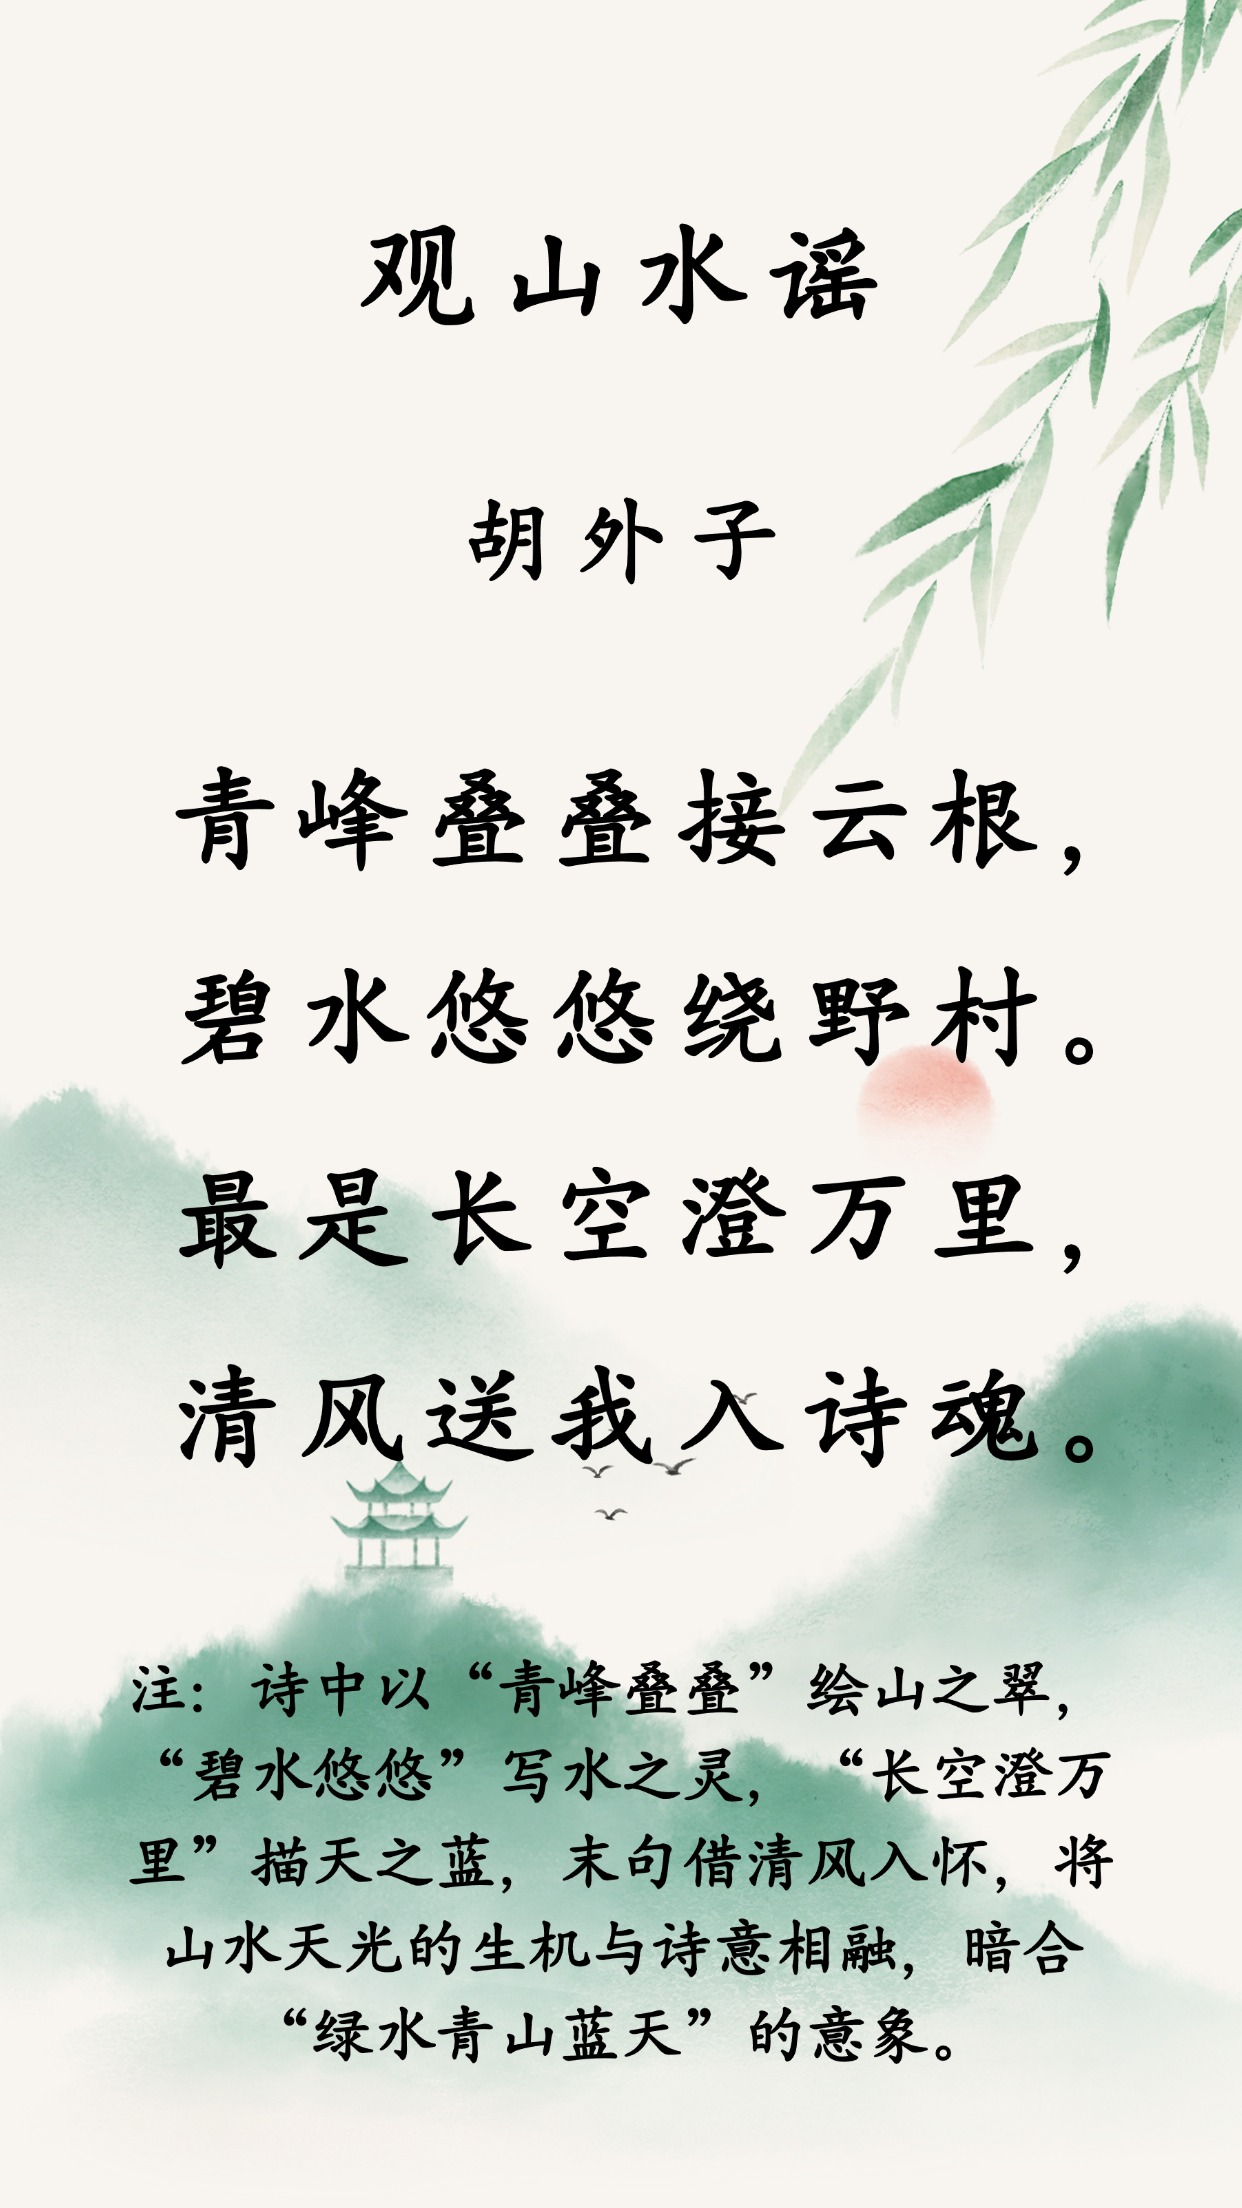 观山水谣
胡外子
青峰叠叠接云根，
碧水悠悠绕野村。
最是长空澄万里，
清风送我入诗魂。
注：诗中以“青峰叠叠”绘山之翠，
“碧水悠悠”写水之灵，“长空澄万
里”描天之蓝，末句借清风入怀，将
山水天光的生机与诗意相融，暗合
“绿水青山蓝天”的意象。